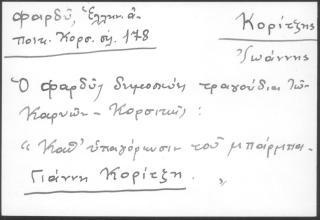 Φαρδῦ, Ἑλλην. ἀ-
ποικ. Κορσ. σελ. 178
Κορίτζης
Ἰωάννης
Ὁ Φαρδῦς δημοσιεύει τραγούδια τῶν
Καρυῶν - Κορσικῆς :
"Καθ' ὑπαγόρευσιν τοῦ μπάρμπα-
Γιάννη Κορίτζη. "